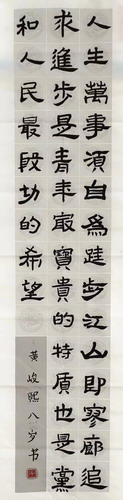 人生萬事須自爲跬步江山即寥廓追
求進步是青年最寶貴的特質也是黨
和人民最殷切的希望
黄峻熙八岁书